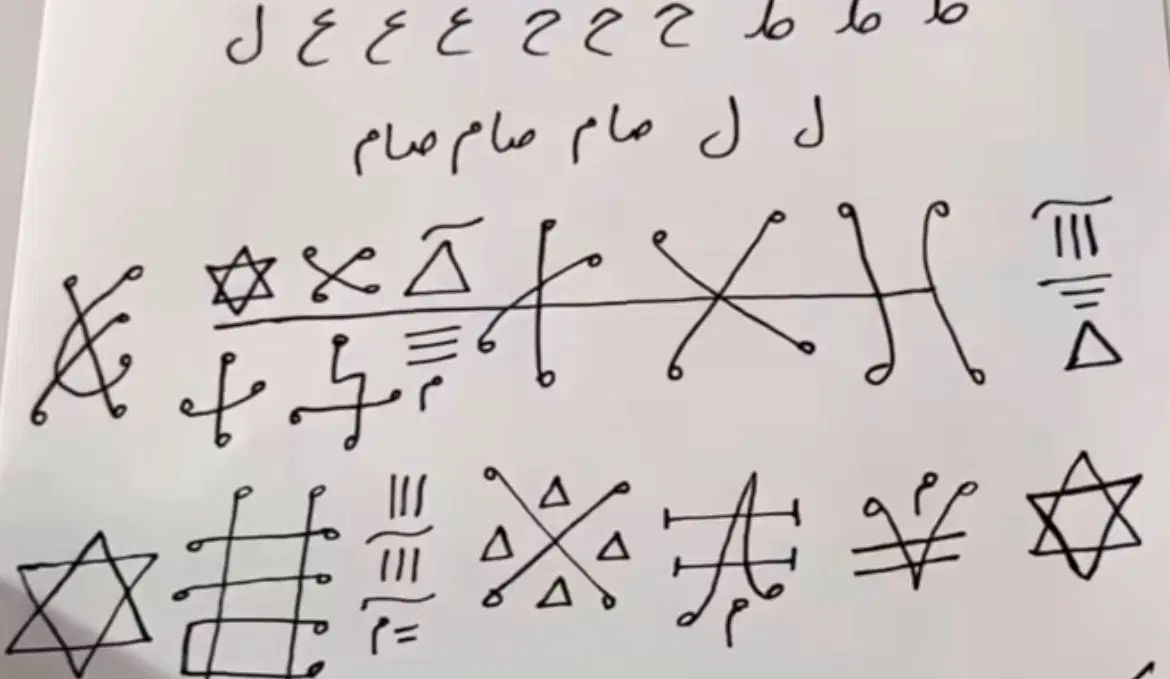 ط ط ط ح ح ح ع ع ع ل
ل ل صام صام صام
م
م
م م